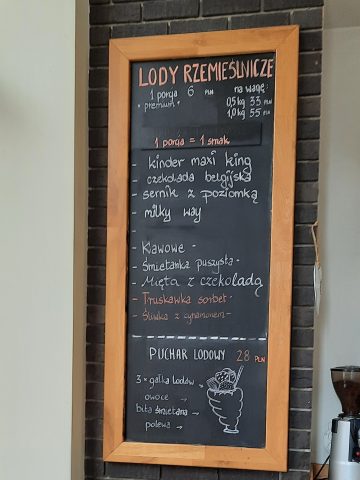 LODY RZEMIEŚLNICZE
1 porcja 6 PLN na wagę:
• premium • 0,5 kg 33 PLN
1,0 kg 55 PLN
1 porcja = 1 smak
- kinder maxi king
- czekolada belgijska
- sernik z poziomką
- milky way
- Kawowe -
- Śmietanka puszysta -
- Mięta z czekoladą
- Truskawka sorbet -
- Śliwka z cynamonem -
PUCHAR LODOWY 28 PLN
3 x gałka lodów →
owoce →
bita śmietana →
polewa →